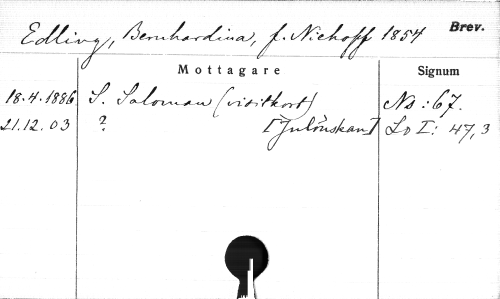 Edling, Bernhardina, f. Niehoff 1854 Brev.
Mottagare Signum
18.4.1886 S. Saloman (visitkort) Ns: 67.
21.12.03 ? [Julönskan] Lo I: 47,3